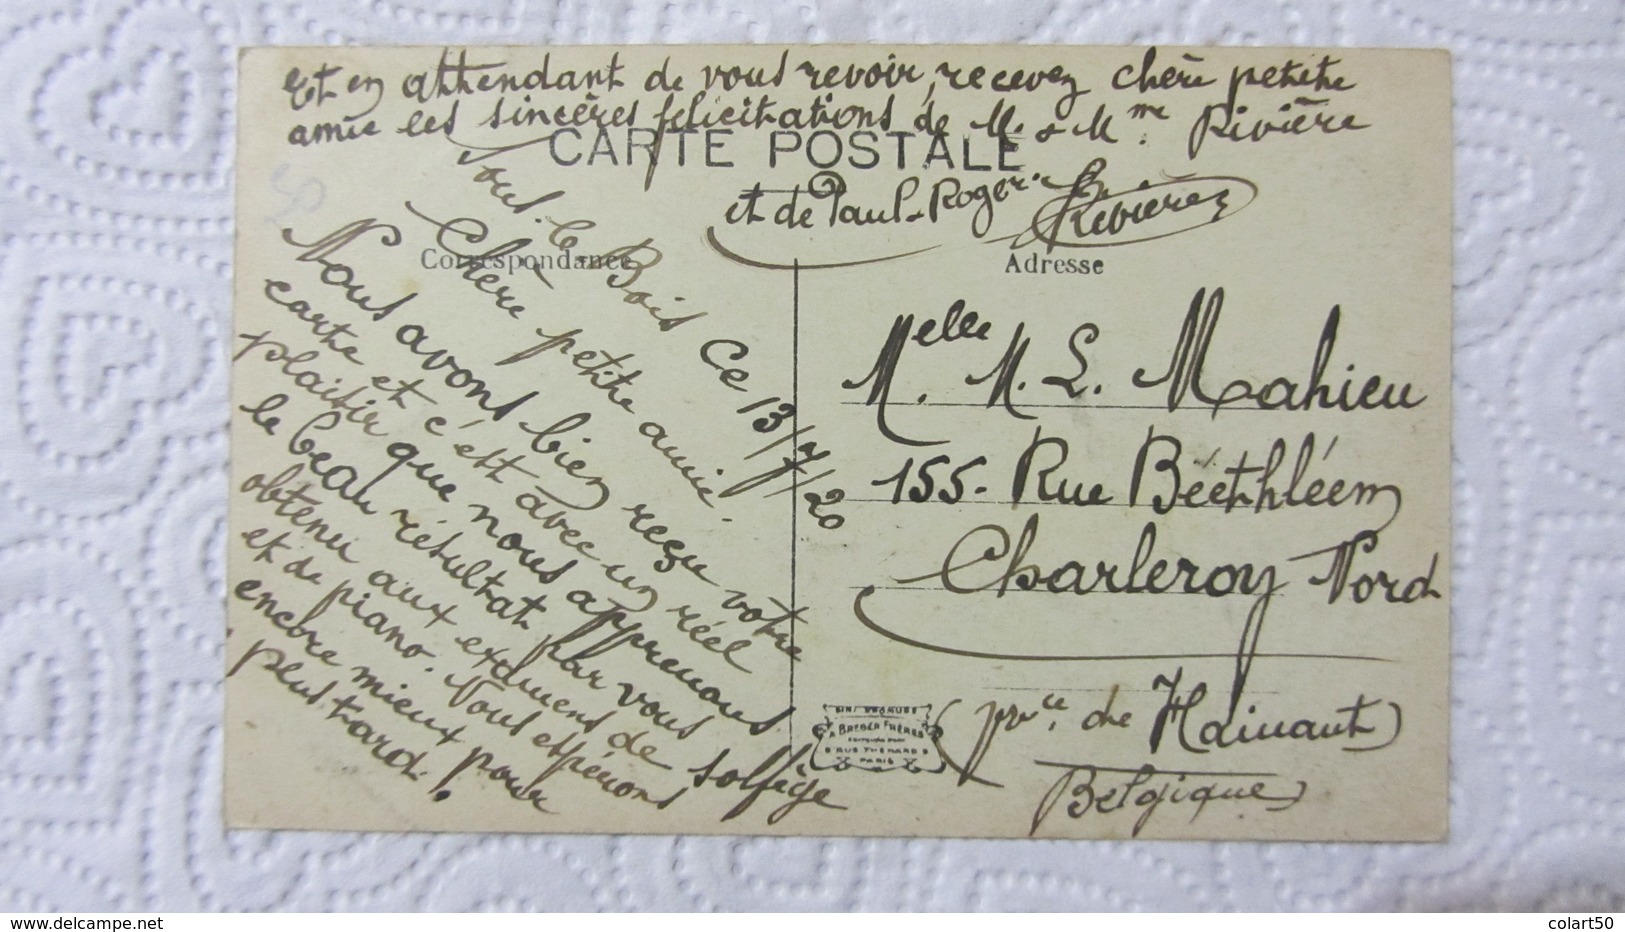 Et en attendant de vous revoir, recevez chère petite
amie les sincères félicitations de M. & Mme. Rivière
et de Paul-Roger.
Rivière
CARTE POSTALE
Correspondance
Adresse
Sous-le-Bois Ce 13/7/20
Chère petite amie.
Nous avons bien reçu votre
carte et c'est avec un réel
plaisir que nous apprenons
le beau résultat par vous
obtenu aux examens de solfège
et de piano. Nous espérons
encore mieux pour
plus tard.!
Melle. M. L. Mahieu
155. Rue Béethléem
Charleroy Nord
(prce. de Hainaut)
Belgique
BREGER FRÈRES
9 RUE THÉNARD 9
PARIS
www.delcampe.net
colart50